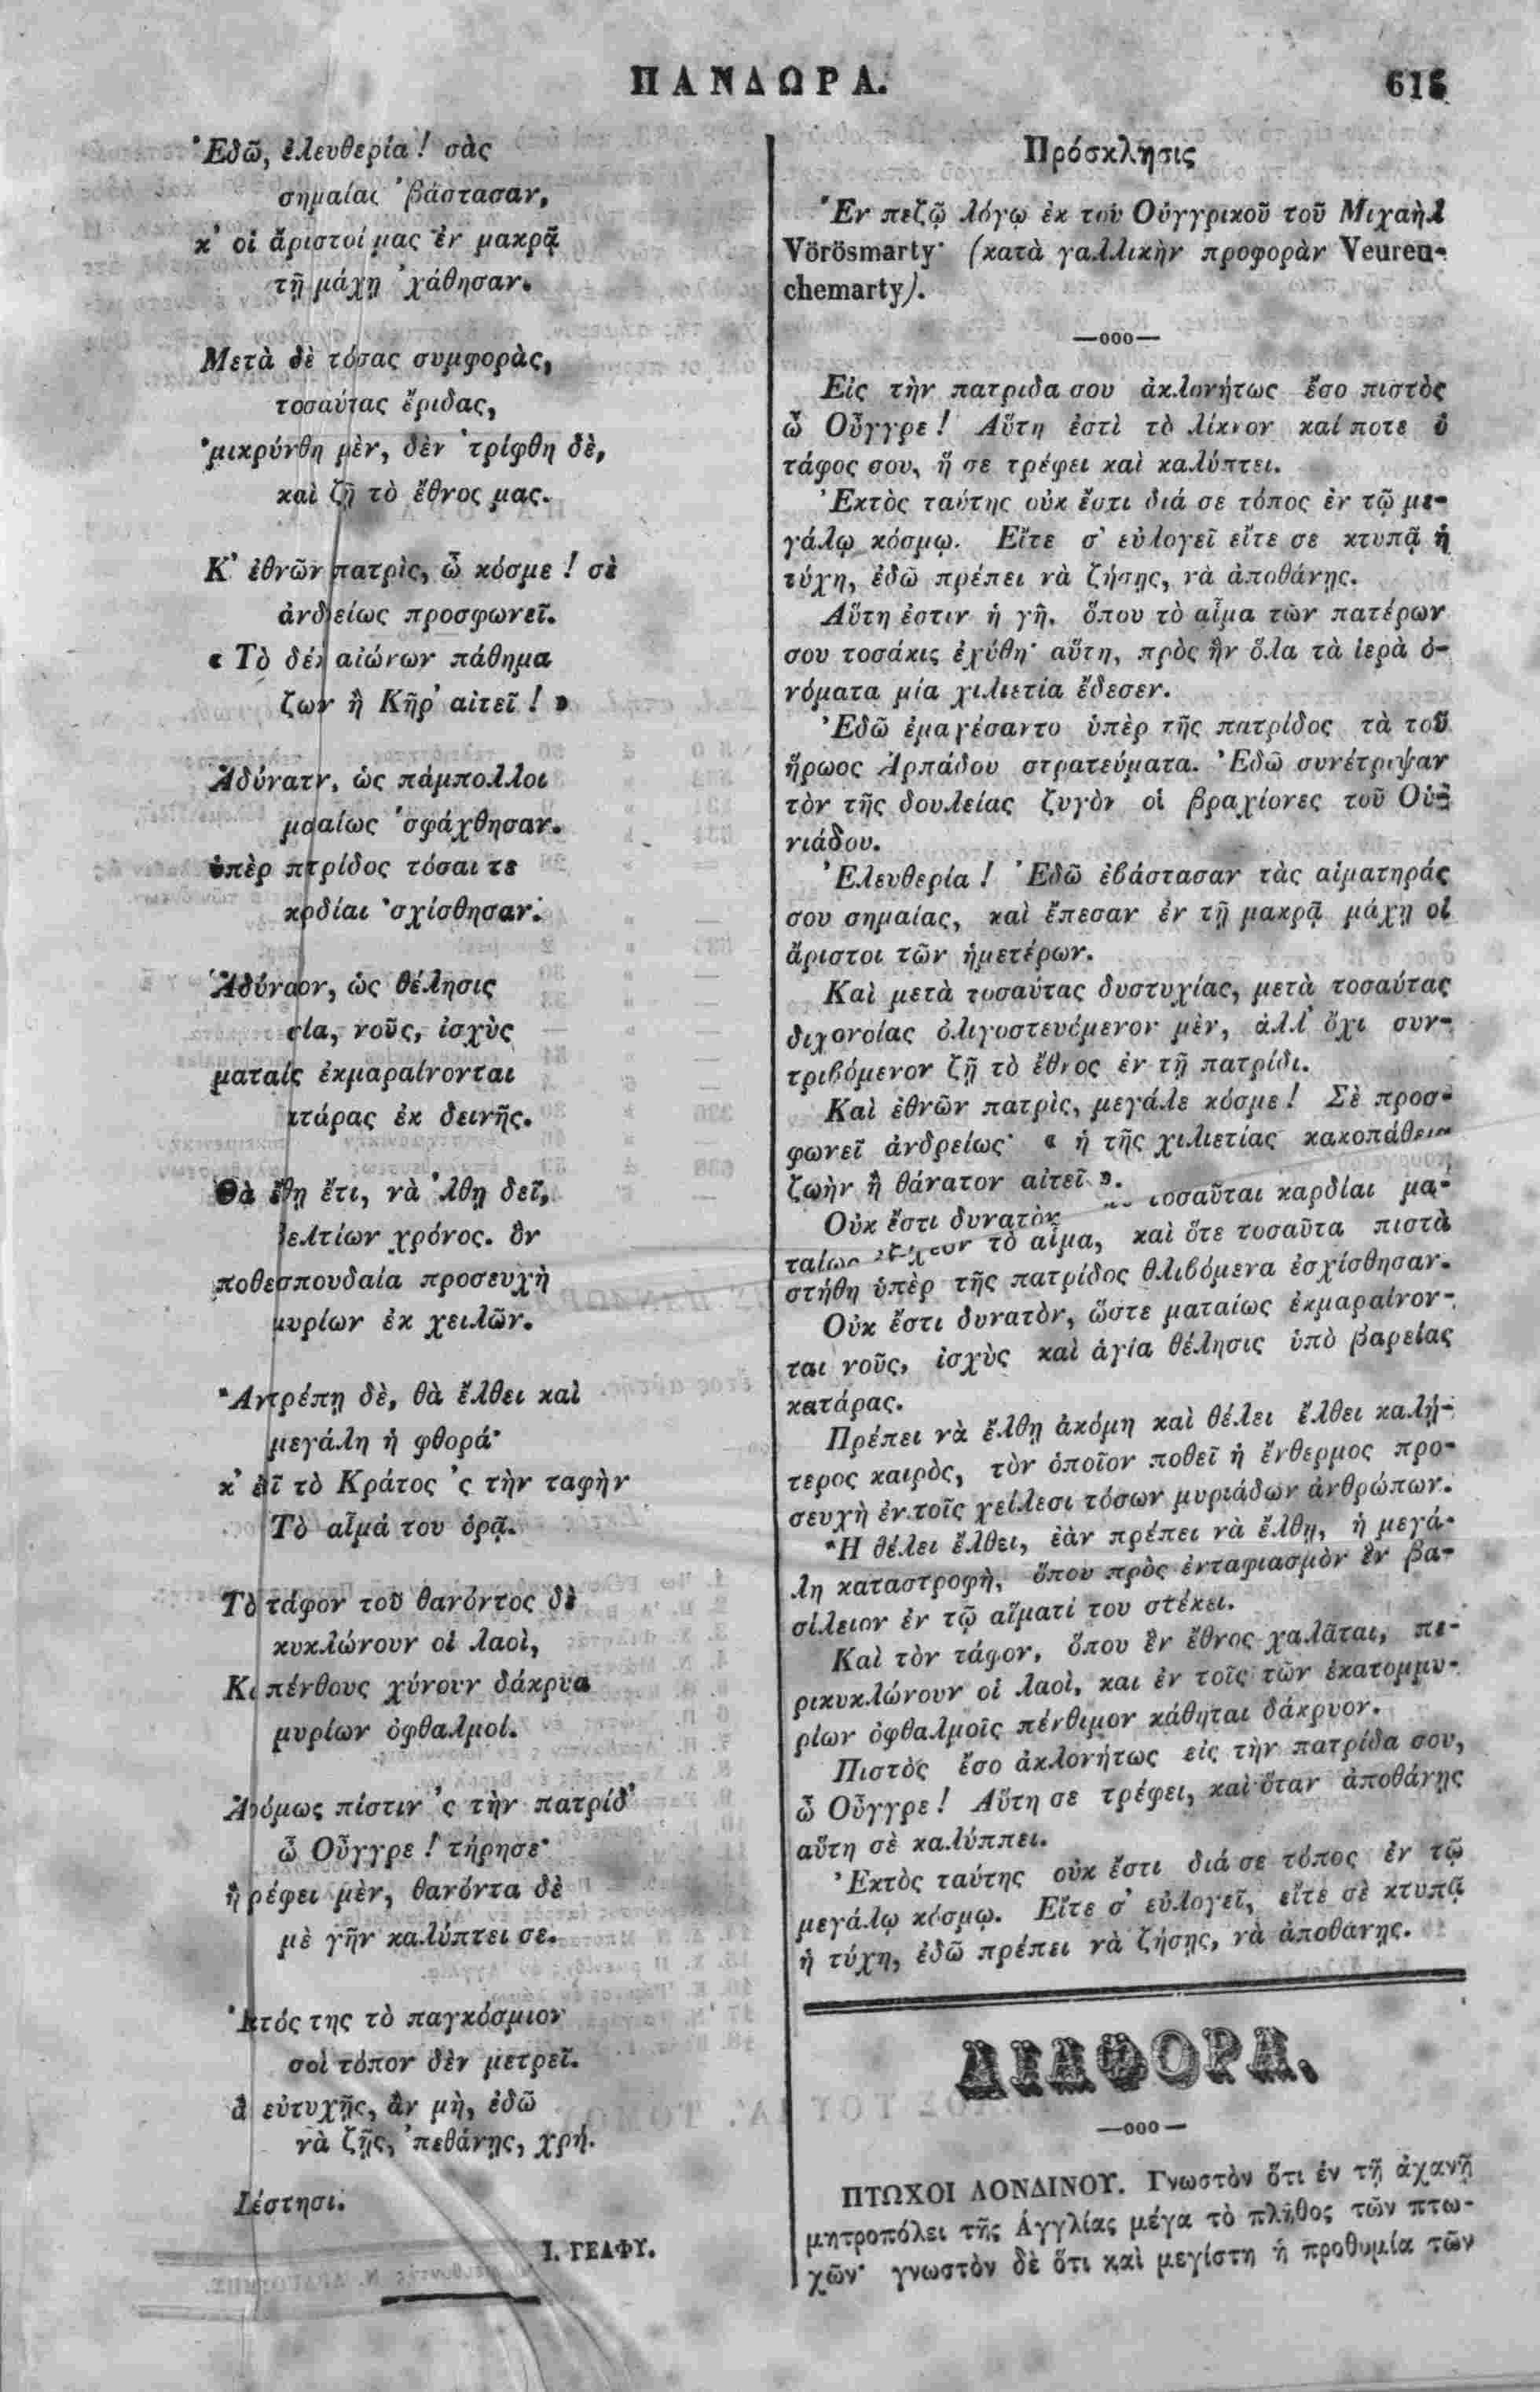 ΠΑΝΔΩΡΑ.
Ἐδῶ, ἐλευθερία! σὰς
σημαίας ’βάστασαν,
κ’ οἱ ἄριστοί μας ἐν μακρᾷ
τῇ μάχῃ ’χάθησαν.
Μετὰ δὲ τόσας συμφορὰς,
τοσαύτας ἔριδας,
’μικρύνθη μὲν, δὲν ’τρίφθη δὲ,
καὶ ζῇ τὸ ἔθνος μας.
Κ’ ἐθνῶν πατρὶς, ὦ κόσμε! σὲ
ἀνδρείως προσφωνεῖ.
« Τὸ δέκ αἰώνων πάθημα
ζωὴν ἢ Κῆρ’ αἰτεῖ! »
Ἀδύνατν, ὡς πάμπολλοι
μααίως ’σφάχθησαν.
ὑπὲρ πτρίδος τόσαι τε
κρδίαι ’σχίσθησαν.
Ἀδύναον, ὡς θέλησις
νοῦς, ἰσχὺς
ἐκμαραίνονται
ἐκ δεινῆς.
Θὰ ἔτι, νὰ ’λθῃ δεῖ,
χρόνος. ὃν
προσευχὴ
μυρίων ἐκ χειλῶν.
δὲ, θὰ ἔλθει καὶ
μεγάλη ἡ φθορά·
κ’ τὸ Κράτος ’ς τὴν ταφὴν
Τὸ αἷμά του ὁρᾷ.
Τὸ τάφον τοῦ θανόντος δὲ
κυκλώνουν οἱ λαοὶ,
πένθους χύνουν δάκρυα
μυρίων ὀφθαλμοί.
πίστιν ’ς τὴν πατρίδ’
ὦ Οὖγγρε! τήρησε·
μὲν, θανόντα δὲ
μὲ γῆν καλύπτει σε.
της τὸ παγκόσμιον
σοὶ τόπον δὲν μετρεῖ.
εὐτυχῇς, ἂν μὴ, ἐδῶ
νὰ ζῇς, ’πεθάνῃς, χρή.
Ι. ΓΕΛΦΥ.
Πρόσκλησις
Ἐν πεζῷ λόγῳ ἐκ τοῦ Οὑγγρικοῦ τοῦ Μιχαὴλ
Vörösmarty· (κατὰ γαλλικὴν προφορὰν Veureu-
chemarty).
—ooo—
Εἰς τὴν πατρίδα σου ἀκλονήτως ἔσο πιστὸς
ὦ Οὖγγρε! Αὕτη ἐστὶ τὸ λίκνον καί ποτε ὁ
τάφος σου, ἥ σε τρέφει καὶ καλύπτει.
Ἐκτὸς ταύτης οὐκ ἔστι διά σε τόπος ἐν τῷ με-
γάλῳ κόσμῳ. Εἴτε σ’ εὐλογεῖ εἴτε σε κτυπᾷ ἡ
τύχη, ἐδῶ πρέπει νὰ ζήσῃς, νὰ ἀποθάνῃς.
Αὕτη ἐστιν ἡ γῆ, ὅπου τὸ αἷμα τῶν πατέρων
σου τοσάκις ἐχύθη· αὕτη, πρὸς ἣν ὅλα τὰ ἱερὰ ὀ-
νόματα μία χιλιετία ἔδεσεν.
Ἐδῶ ἐμαχέσαντο ὑπὲρ τῆς πατρίδος τὰ τοῦ
ἥρωος Ἀρπάδου στρατεύματα. Ἐδῶ συνέτριψαν
τὸν τῆς δουλείας ζυγὸν οἱ βραχίονες τοῦ Οὑ-
νιάδου.
Ἐλευθερία! Ἐδῶ ἐβάστασαν τὰς αἱματηράς
σου σημαίας, καὶ ἔπεσαν ἐν τῇ μακρᾷ μάχῃ οἱ
ἄριστοι τῶν ἡμετέρων.
Καὶ μετὰ τοσαύτας δυστυχίας, μετὰ τοσαύτας
διχονοίας ὀλιγοστευόμενον μὲν, ἀλλ’ ὄχι συν-
τριβόμενον ζῇ τὸ ἔθνος ἐν τῇ πατρίδι.
Καὶ ἐθνῶν πατρὶς, μεγάλε κόσμε! Σὲ προσ-
φωνεῖ ἀνδρείως· « ἡ τῆς χιλιετίας κακοπάθεια
ζωὴν ἢ θάνατον αἰτεῖ ».
Οὐκ ἔστι δυνατὸν τοσαῦται καρδίαι μα-
ταίως τὸ αἷμα, καὶ ὅτε τοσαῦτα πιστὰ
στήθη ὑπὲρ τῆς πατρίδος θλιβόμενα ἐσχίσθησαν.
Οὐκ ἔστι δυνατὸν, ὥστε ματαίως ἐκμαραίνον-
ται νοῦς, ἰσχὺς καὶ ἁγία θέλησις ὑπὸ βαρείας
κατάρας.
Πρέπει νὰ ἔλθῃ ἀκόμη καὶ θέλει ἔλθει καλή-
τερος καιρὸς, τὸν ὁποῖον ποθεῖ ἡ ἔνθερμος προ-
σευχὴ ἐν τοῖς χείλεσι τόσων μυριάδων ἀνθρώπων.
Ἢ θέλει ἔλθει, ἐὰν πρέπει νὰ ἔλθῃ, ἡ μεγά-
λη καταστροφὴ, ὅπου πρὸς ἐνταφιασμὸν ἓν βα-
σίλειον ἐν τῷ αἵματί του στέκει.
Καὶ τὸν τάφον, ὅπου ἓν ἔθνος χαλᾶται, πε-
ρικυκλώνουν οἱ λαοὶ, και ἐν τοῖς τῶν ἑκατομμυ-
ρίων ὀφθαλμοῖς πένθιμον κάθηται δάκρυον.
Πιστὸς ἔσο ἀκλονήτως εἰς τὴν πατρίδα σου,
ὦ Οὖγγρε! Αὕτη σε τρέφει, καὶ ὅταν ἀποθάνῃς
αὕτη σὲ καλύππει.
Ἐκτὸς ταύτης οὐκ ἔστι διά σε τόπος ἐν τῷ
μεγάλῳ κόσμῳ. Εἴτε σ’ εὐλογεῖ, εἴτε σὲ κτυπᾷ
ἡ τύχη, ἐδῶ πρέπει νὰ ζήσῃς, νὰ ἀποθάνῃς.
ΔΙΑΦΟΡΑ.
—ooo—
ΠΤΩΧΟΙ ΛΟΝΔΙΝΟΥ. Γνωστὸν ὅτι ἐν τῇ ἀχανῇ
μητροπόλει τῆς Ἀγγλίας μέγα τὸ πλῆθος τῶν πτω-
χῶν· γνωστὸν δὲ ὅτι καὶ μεγίστη ἡ προθυμία τῶν